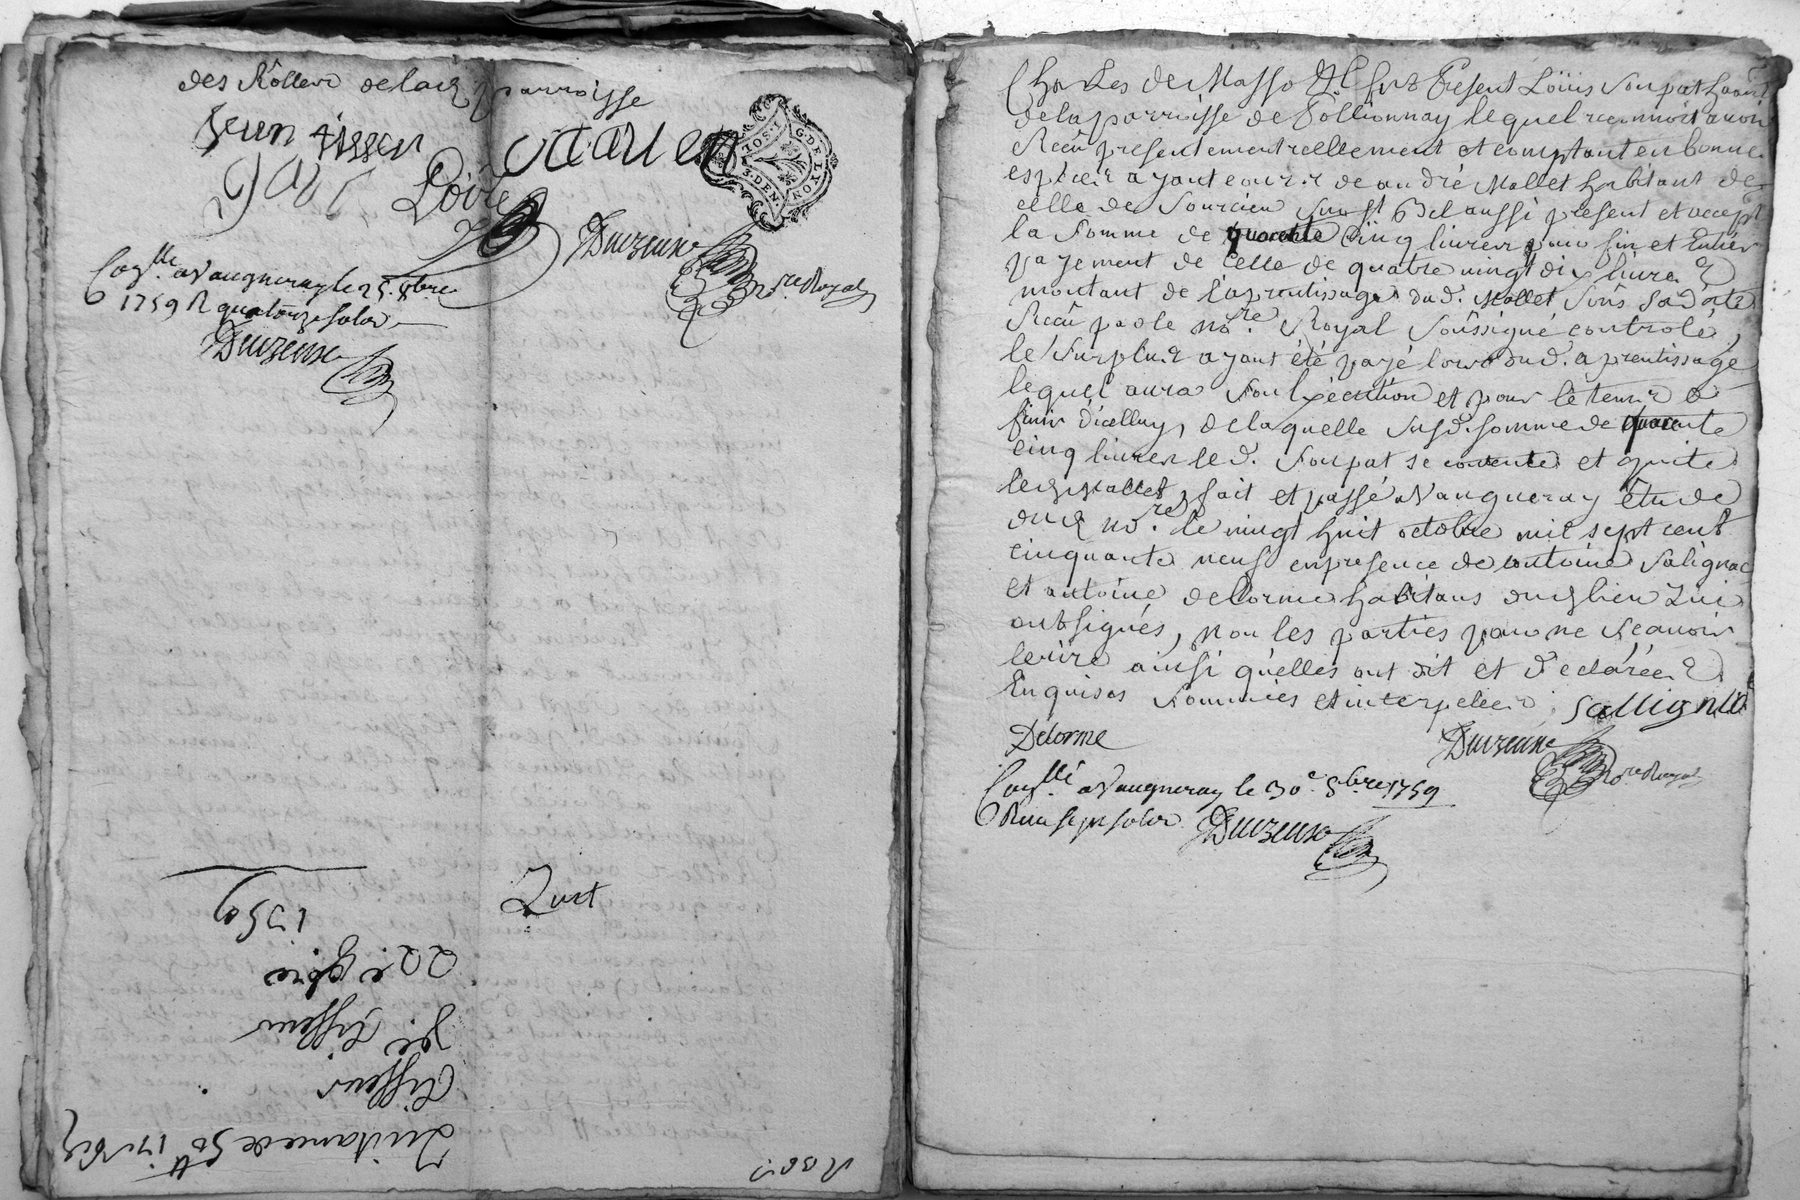 des Rôlles de lad parroisse
Jean tisseur
Loire
Duvzeune
n.re Royal
Con.llé a Vaugneray le 25. 8bre
1759 R quatorze sols
Duvzeune
G. DE LYON
3. DEN.
Quit
Quitance de 50ll
tisseur
1759
de la parroisse de Pollionnay lequel reconnoit avoir
Recû presentement reellement et comptant en bonne
especes ayant cours de andré Mallet habitant de
celle de Sourcieu sur St Bel aussi present et accept
la Somme de quarente Cinq livres pour fin et Entier
payement de Celle de quatre vingt dix livres
montant de l'aprentissage dud. Mallet Sous Sa datte
Recû par le no.re Royal Soûssigné controlé,
le Surplus ayant été payé lors dud. aprentissage
lequel aura Son Exécution et pour le tems a
finir d'icelluy, de laquelle Susd. somme de quarente
cinq livres led. Soupat se contente et quitte
led Mallet, fait et passé a Vaugneray êtude
dud no.re le vingt huit octobre mil sept cent
cinquante neuf en presence de antoine Salignac
et antoine delorme habitans dud lieu Qui
ont signés, non les parties pour ne sçavoir
lerire ainsi qu'elles ont dit et déclarées
Enquises Sommées et interpelées
Delorme
Duvzeune
n.re Royal
Con.llé a Vaugneray le 30e 8bre 1759
R sols Duvzeune